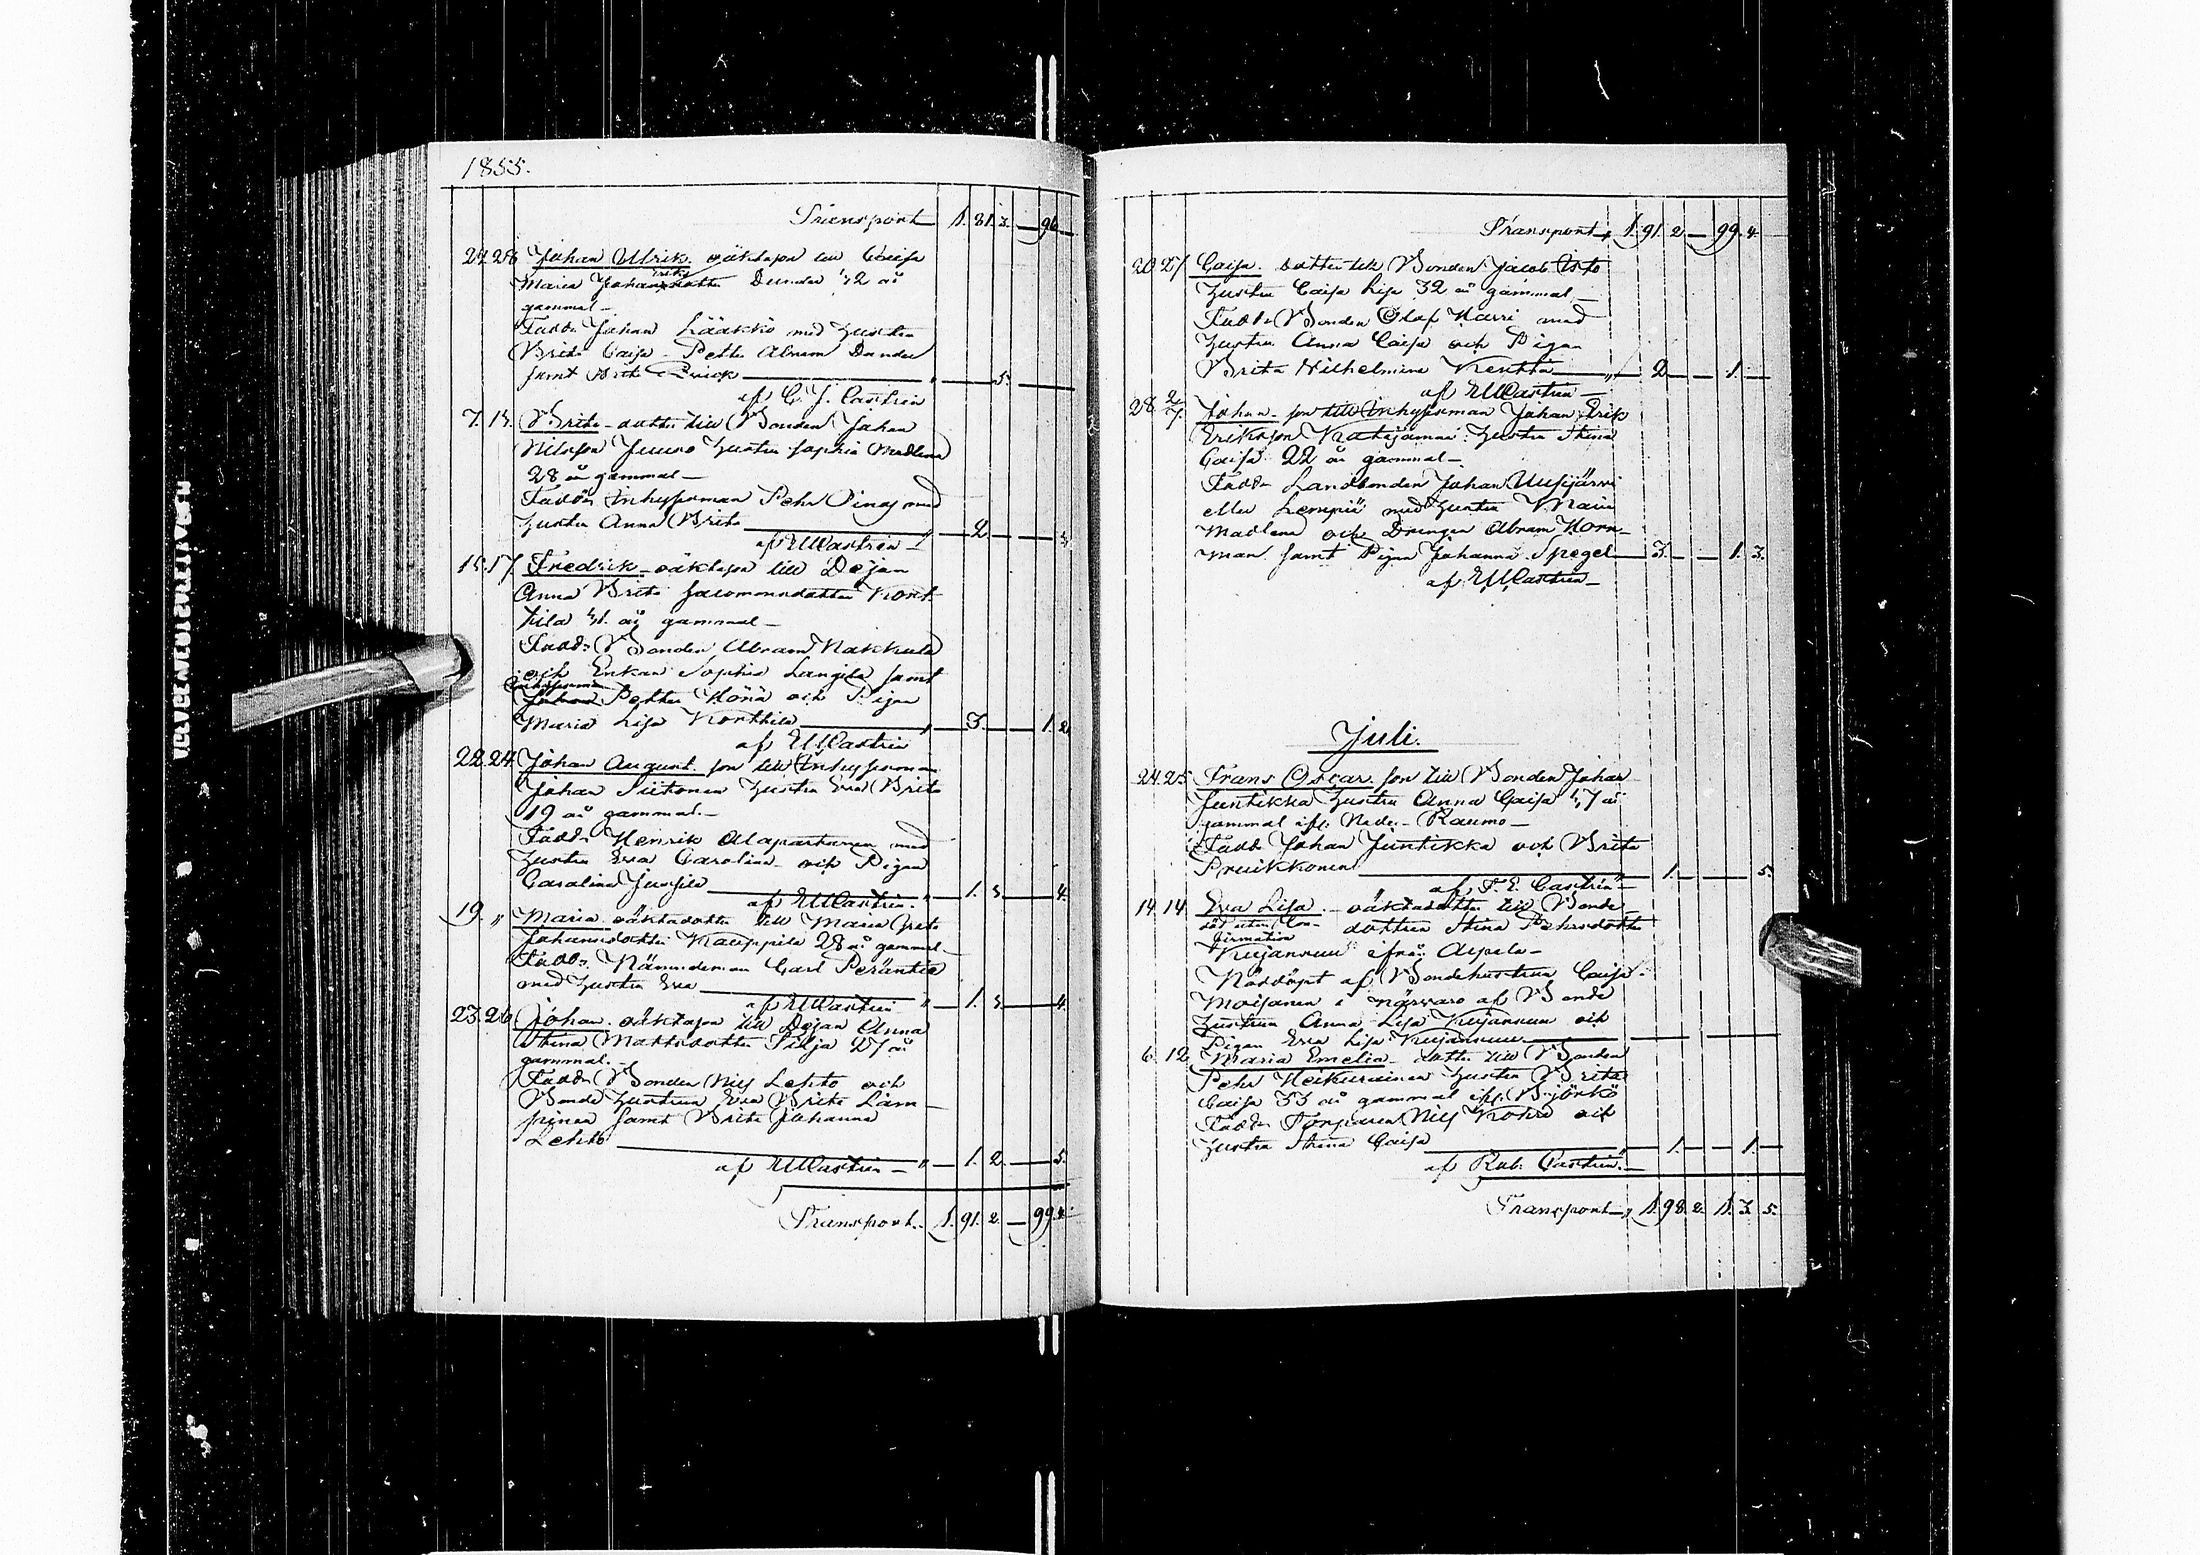 1855.
Transport 1. 81. 3. — 96 —
27 28 Johan Ulrik. oäkta son till Caisa
Maria Johansdotter Dunder 42 år
gammal —
Fadd. Johan Lääkkö med hustru
Brita Caisa — Petter Abram Dunder
samt Brita — 5. —
af C. J. Castrén
7. 15. Brita — dotter till Bonden Johan
Nilsson Juuso hustru Sophia Madlena
28 år gammal —
Fadd. Inhysesman Pehr Pinas med
hustru Anna Brita — 2 —
af Castrén —
15. 17. Fredrik — oäkta son till Dejan
Anna Brita Salomonsdotter Kont-
tila 41. år gammal —
Fadd. Bonden Abram Nakkula
och Enkan Sophia Langila samt
Inhysesman
Johan Petter Hörä och Pigan
Maria Lisa Konttila — 3. — 1. 2
af Castrén
22. 24. Johan August. son till Inhysesman
Johan Siitonen hustru Eva Brita
19 år gammal. —
Fadd. Henrik Alapartanen med
hustru Eva Carolina — och Pigan
Carolina Jussila — 1. 3. — 4.
af Castrén. —
19. " Maria. oäkta dotter till Maria Greta
Johansdotter Kauppila 28 år gammal —
Fadd. Nämndeman Carl Peräntie
med hustru Eva — 1. 3. — 4.
af Castrén
23. 26. Johan. oäkta son till Dejan Anna
Stina Mattsdotter Silja 27 år
gammal. —
Fadd. Bonden Nils Lehto och
Bonde hustrun Eva Brita Läm-
pinen samt Brita Johanna
Lehto — 1. 2. — 5.
af Castrén —
Transport. 1. 91. 2. — 99. 4.
Transport 1. 91. 2. — 99. 4.
20 27 Caisa. dotter till Bonden Jacob
hustru Caisa Lisa 32 år gammal —
Fadd. Bonden Olof Harri med
hustru Anna Caisa och Pigan
Brita Wilhelmina Kenttä — 2 — 1. —
af Castrén —
28 2/7. Johan — son till Inhysesman Johan Erik
Eriksson Katajamaa hustru Stina
Caisa 22 år gammal —
Fadd. Landbonden Johan Uusijärvi
eller Lempiä med hustru Maria
Madlena och Drengen Abram Horn-
man samt Pigan Johanna Spegel — 3. — 1. 3.
af Castrén —
Juli.
24. 25. Frans Oscar. son till Bonden Johan
Juntikka hustru Anna Caisa 47 år
gammal ifr. Neder-Raumo —
Fadd. Johan Juntikka och Brita
Pruikkonen — 1. — 5.
af F. E. Castrén —
14. 14. Eva Lisa. — oäkta dotter till Bonde
död utan Con- dottren Stina Pehrsdotter
firmation
Kujansuu ifrån Arpela —
Nöddöpt af Bondehustrun Caisa
Moijanen i närvaro af Bonde
hustrun Anna Lisa Kujansuu och
Pigan Eva Lisa Kujansuu —
6. 12. Maria Emelia — dotter till Bonden
Pehr Heikurainen hustru Brita
Caisa 33 år gammal ifr. Björkö
Fadd. Torparen Nils och
hustru Stina Caisa — 1. — 1. —
af Rob. Castrén. —
Transport 1. 98. 2. 1. 3. 5.